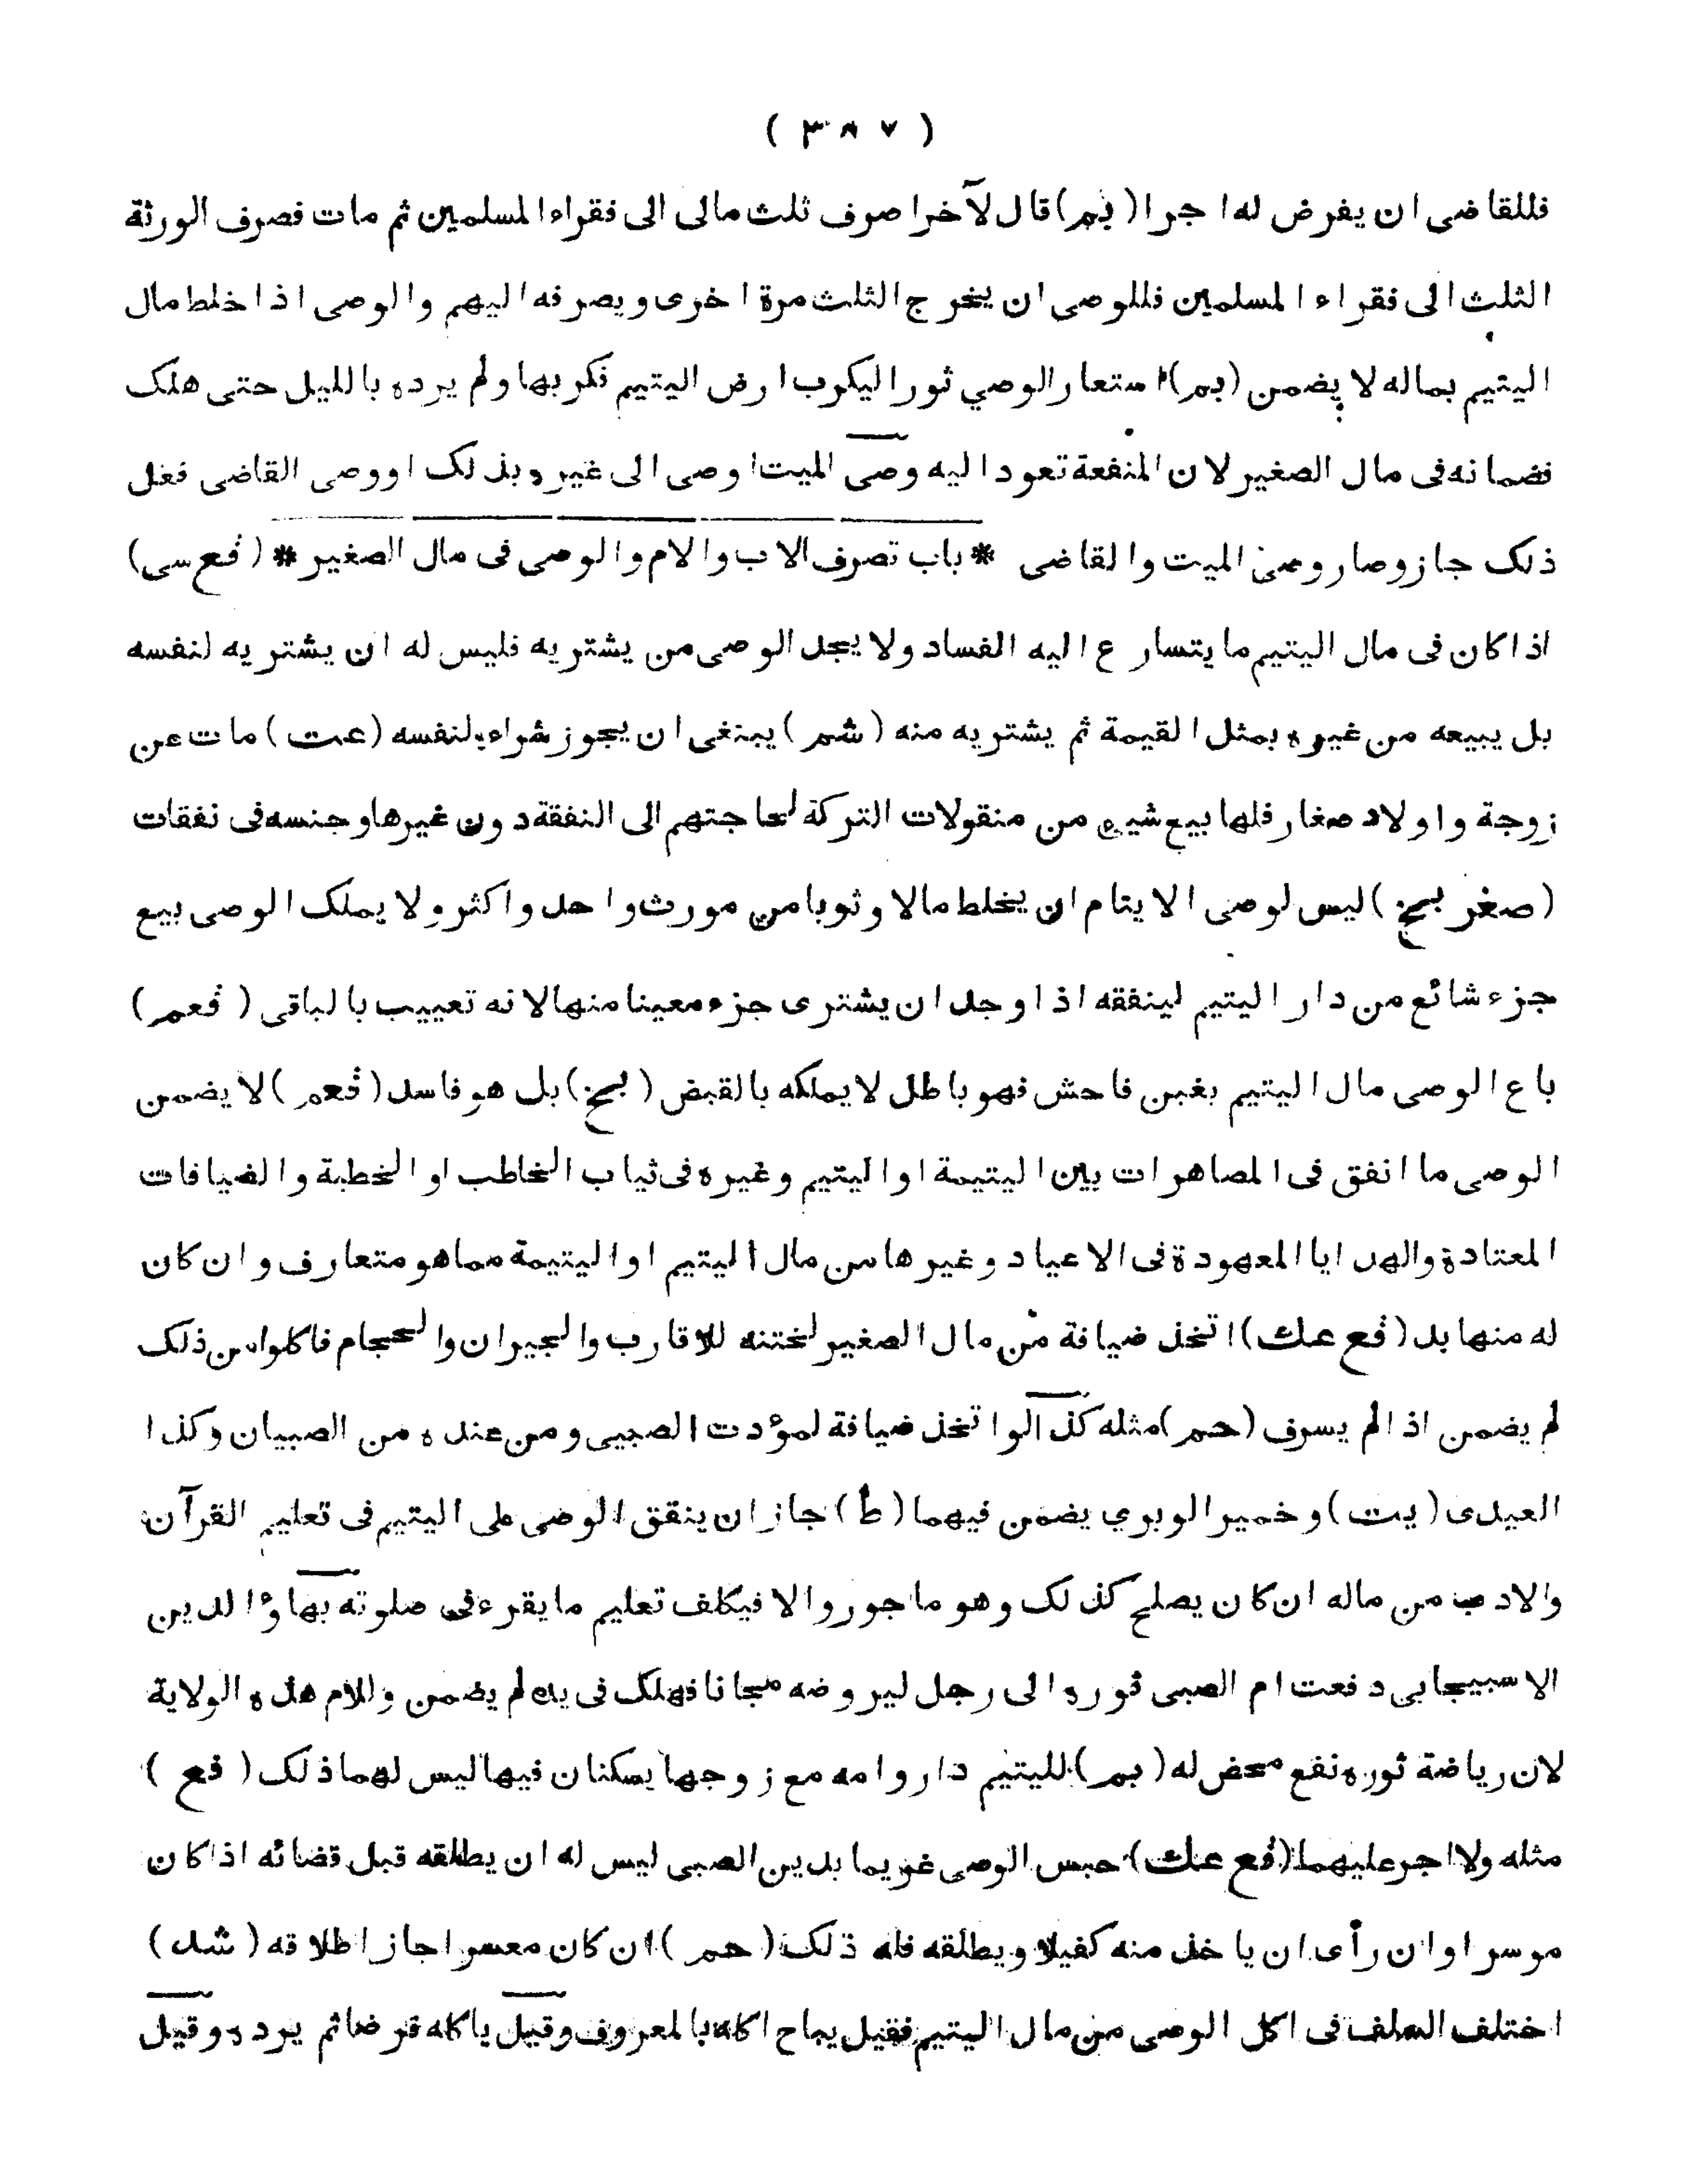 ( ٣٨٧ )
فللقاضى ان يفرض له اجرا (بم) قال لآخر اصرف ثلث مالى الى فقراء المسلمين ثم مات فصرف الورثة
الثلث الى فقراء المسلمين فللوصى ان يخرج الثلث مرة اخرى ويصرفه اليهم والوصى اذا خلط مال
اليتيم بماله لا يضمن (بم) استعار الوصي ثورا ليكرب ارض اليتيم فكربها ولم يرده بالليل حتى هلك
فضمانه فى مال الصغير لان المنفعة تعود اليه وصى الميت اوصى الى غيره بذلك اووصى القاضى فعل
ذلك جاز وصار وصى الميت والقاضى * باب تصرف الاب والام والوصى فى مال الصغير * (فع سى)
اذا كان فى مال اليتيم ما يتسارع اليه الفساد ولا يجد الوصى من يشتريه فليس له ان يشتريه لنفسه
بل يبيعه من غيره بمثل القيمة ثم يشتريه منه (شم) يبنغى ان يجوز شراءه لنفسه (عت) مات عن
زوجة واولاد صغار فلها بيع شيء من منقولات التركة لحاجتهم الى النفقة دون غيرها وجنسه فى نفقات
(صغر بخ) ليس لوصى الايتام ان يخلط مالا وثوبا من مورث واحد واكثر ولا يملك الوصى بيع
جزء شائع من دار اليتيم لينفقه اذا وجد ان يشترى جزء معينا منها لانه تعييب بالباقى (فعم)
باع الوصى مال اليتيم بغبن فاحش فهو باطل لا يملكه بالقبض (بخ) بل هو فاسد (فعم) لا يضمن
الوصى ما انفق فى المصاهرات بين اليتيمة او اليتيم وغيره فى ثياب الخاطب او الخطبة والضيافات
المعتادة والهدايا المعهودة فى الاعياد وغيرها من مال اليتيم او اليتيمة مما هو متعارف وان كان
له منها بد (فع عك) اتخذ ضيافة من مال الصغير لختنه للاقارب والجيران والحجام فاكلوا من ذلك
لم يضمن اذا لم يسرف (حم) مثله كذا لو اتخذ ضيافة لمؤدت الصبيى ومن عنده من الصبيان وكذا
العيدى (يت) وخمير الوبري يضمن فيهما (ط) جاز ان ينفق الوصى على اليتيم فى تعليم القرآن
والادب من ماله ان كان يصلح كذلك وهو ماجور والا فيكلف تعليم ما يقرء فى صلوته بهاؤ الدين
الاسبيجابى دفعت ام الصبى ثوره الى رجل ليروضه مجانا فهلك فى يده لم يضمن وللام هذه الولاية
لان رياضة ثوره نفع محض له (بم) لليتيم دار وامه مع زوجها يسكنان فيها ليس لهما ذلك (فع)
مثله ولا اجر عليهما (فع عك) حبس الوصى غريما بدين الصبى ليس له ان يطلقه قبل قضائه اذا كان
موسرا وان رأى ان ياخذ منه كفيلا ويطلقه فله ذلك (حم) ان كان معسرا جاز اطلاقه (شد)
اختلف السلف فى اكل الوصى من مال اليتيم فقيل يباح اكله بالمعروف وقيل ياكله قرضا ثم يرده وقيل